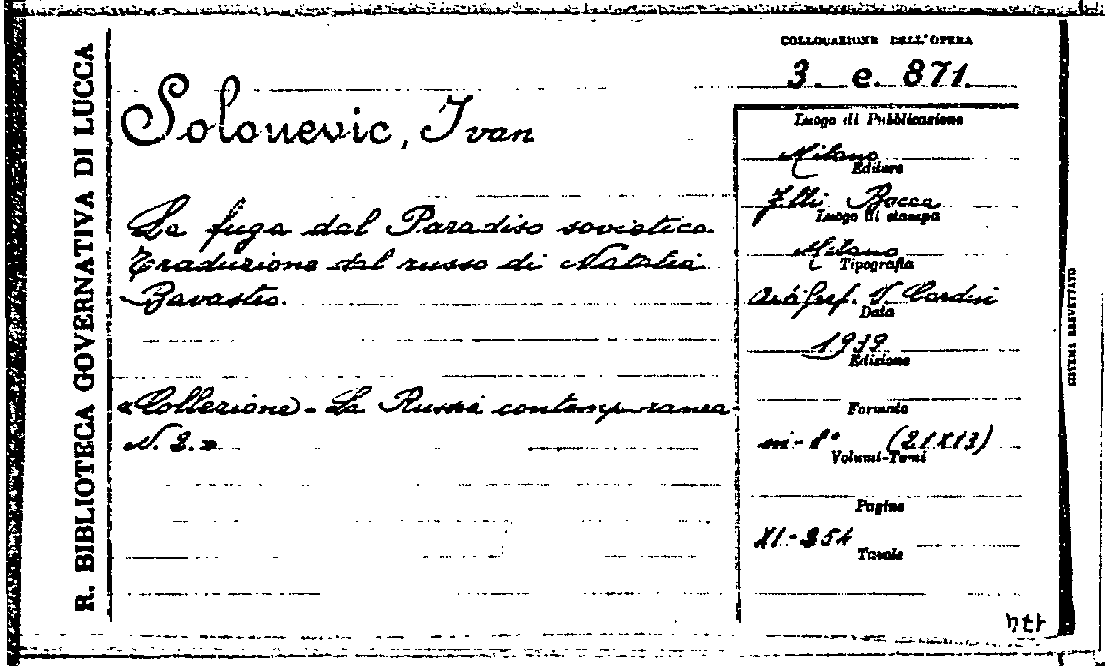 R. BIBLIOTECA GOVERNATIVA DI LUCCA
COLLOCAZIONE DELL'OPERA
3. e. 871.
Solonevic, Ivan
La fuga dal Paradiso sovietico.
Traduzione dal russo di Natalia
Bavastro.
«Collezione - La Russia contemporanea
N. 2.»
Luogo di Pubblicazione
Milano
Editore
F.lli Bocca
Luogo di stampa
Milano
Tipografia
Cordani
Data
1939
Edizione
Formato
in-8° (21X13)
Volumi-Tomi
Pagine
XI-254
Tavole
SISTEMA BREVETTATO